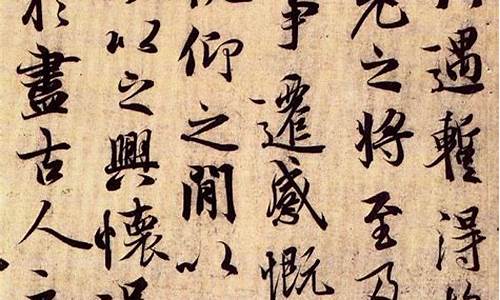 遇暫得
老之將至及
事遷感慨
仰之閒以
以之興懷況
於盡古人云